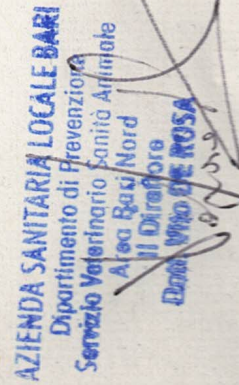 AZIENDA SANITARIA LOCALE BARI
Dipartimento di Prevenzione
Servizio Veterinario Sanità Animale
Area Bari Nord
Il Direttore
Dott. Vito DE ROSA